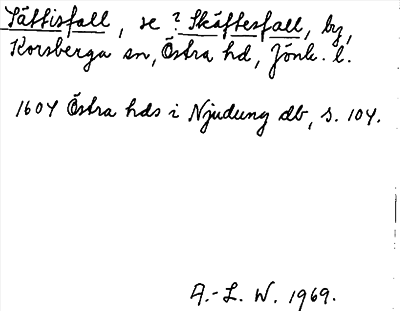 Sättisfall, se ? Skäftesfall, by,
Korsberga sn, Östra hd, Jönk. l.
1604 Östra hds i Njudung db, s. 104.
A.-L. W. 1969.